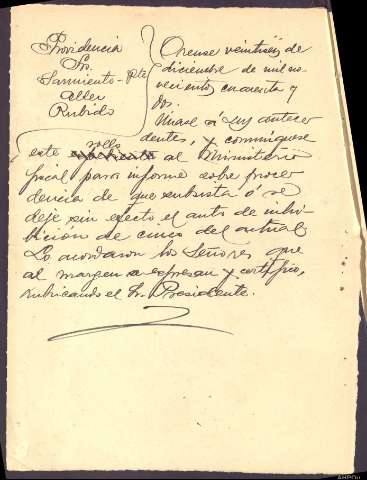 Providencia
Sres.
Sarmiento-pte
Aller
Rubido
Orense veintiseis de
diciembre de mil no-
vecientos cuarenta y
dos.
Unase á sus antece
dentes, y comuníquese
rollo
este expediente al Ministerio
fiscal para informe sobre proce
dencia de que subsista ó se
deje sin efecto el auto de inhi-
bición de cinco del actual.
Lo acordaron los Señores que
al margen se expresan y certifico,
rubricando el Sr. Presidente.